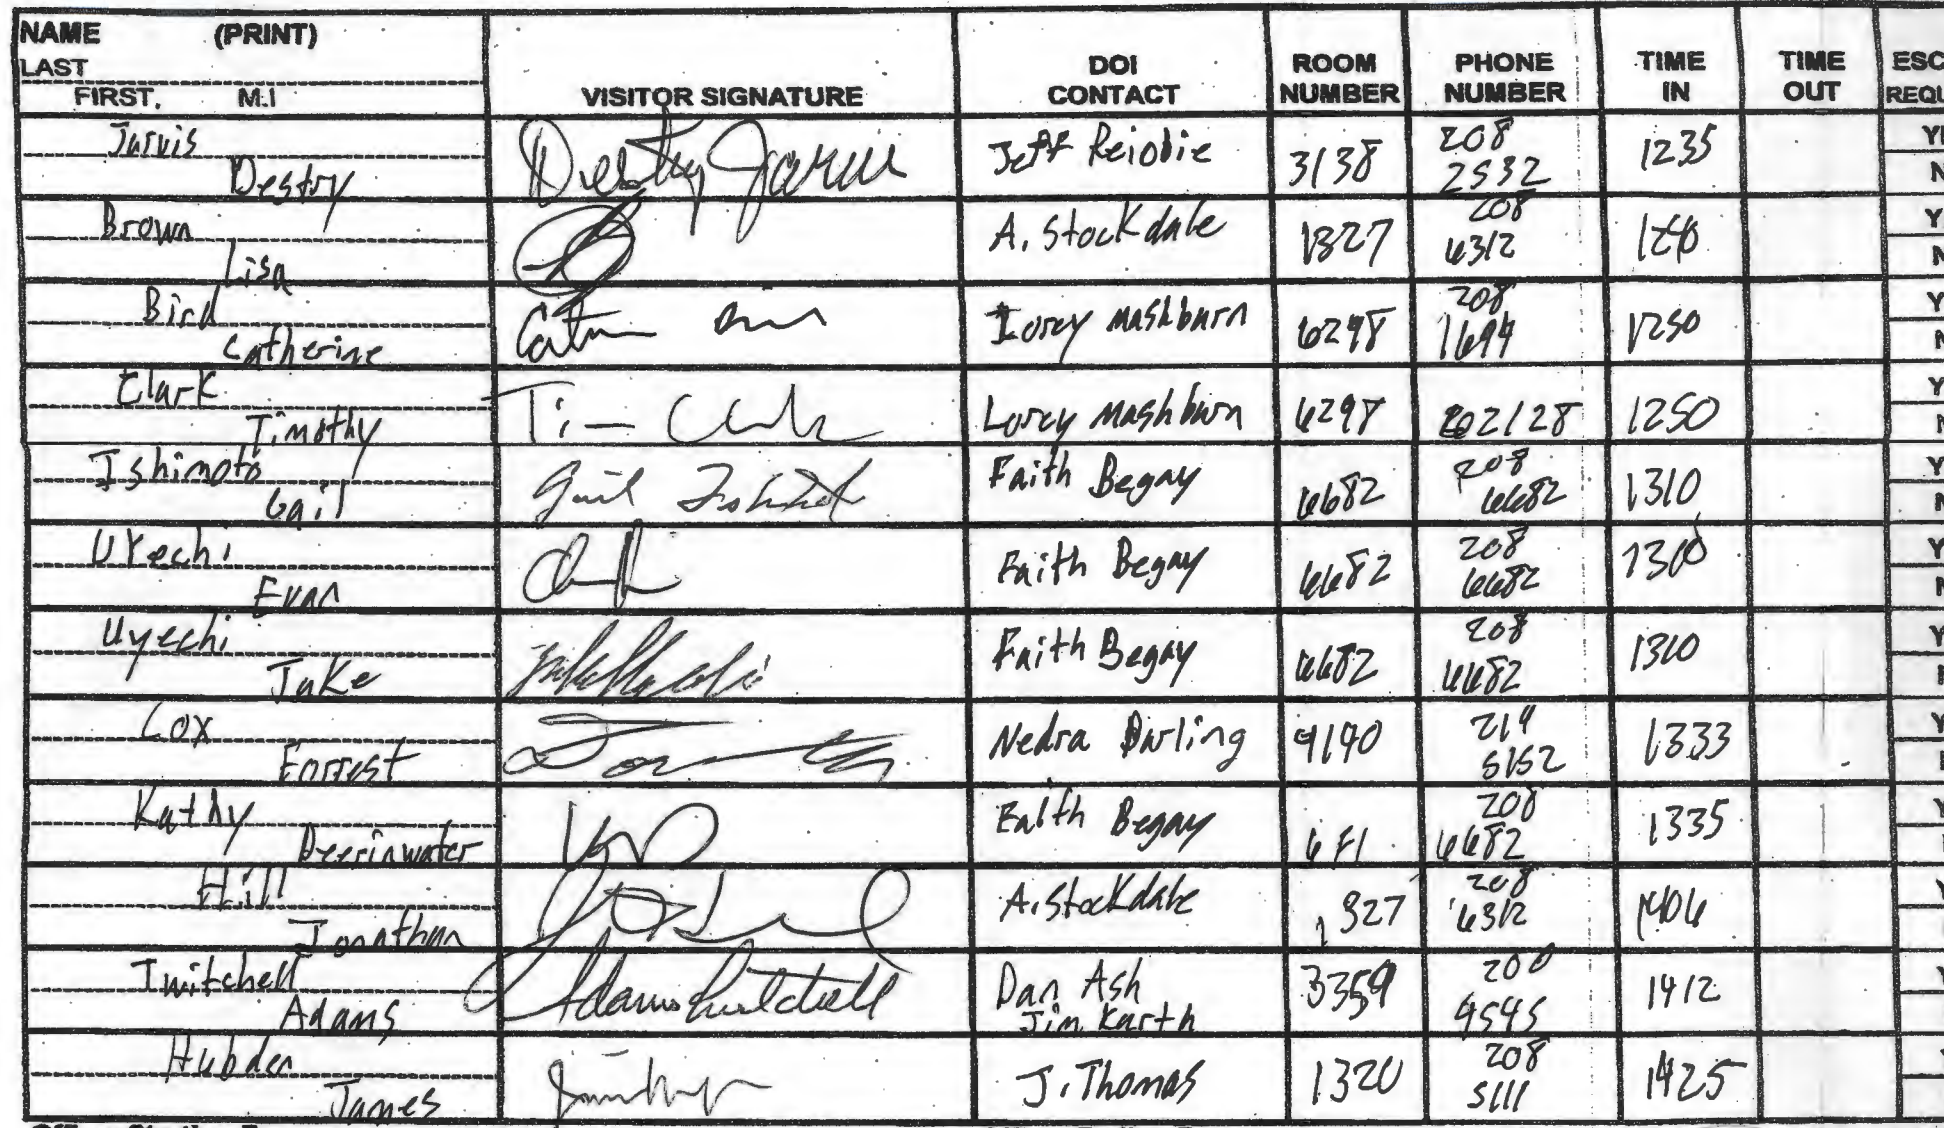 NAME (PRINT)
LAST
FIRST, M.I
VISITOR SIGNATURE
DOI CONTACT
ROOM NUMBER
PHONE NUMBER
TIME IN
TIME OUT
ESC
REQU
Jarvis
Destry
Destry Jarvis
Jeff
3138
208
2532
1235
Y
N
Brown
Lisa
A. Stockdale
1327
208
6312
Y
N
Bird
Catherine
Lorey Mashburn
6298
208
1694
1250
Y
N
Clark
Timothy
Tim Clark
Lorey Mashburn
6298
1250
Y
N
Ishimoto
Gail
Gail
Faith Begay
6682
208
6682
1310
Y
N
UYechi
Evan
Faith Begay
6682
208
6682
Y
N
Uyechi
Jake
Faith Begay
6682
208
6682
1310
Y
Cox
Forrest
Nedra Darling
219
5152
1333
Y
Kathy
Deerinwater
Faith Begay
208
6682
1335
Y
Hill
Jonathan
A. Stockdale
1327
208
6312
1406
Y
Twitchell
Adams
Adams Twitchell
Dan Ash
Jim Karth
3359
1412
Y
James
J. Thomas
1320
208
5111
1425